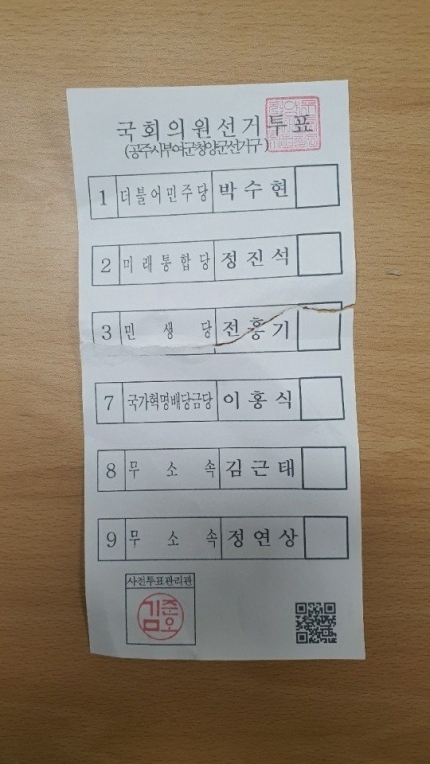 국회의원선거투표
(공주시부여군청양군선거구)
1 더불어민주당 박수현
2 미래통합당 정진석
3 민생당 전홍기
7 국가혁명배당금당 이홍식
8 무소속 김근태
9 무소속 정연상
사전투표관리관
김준오